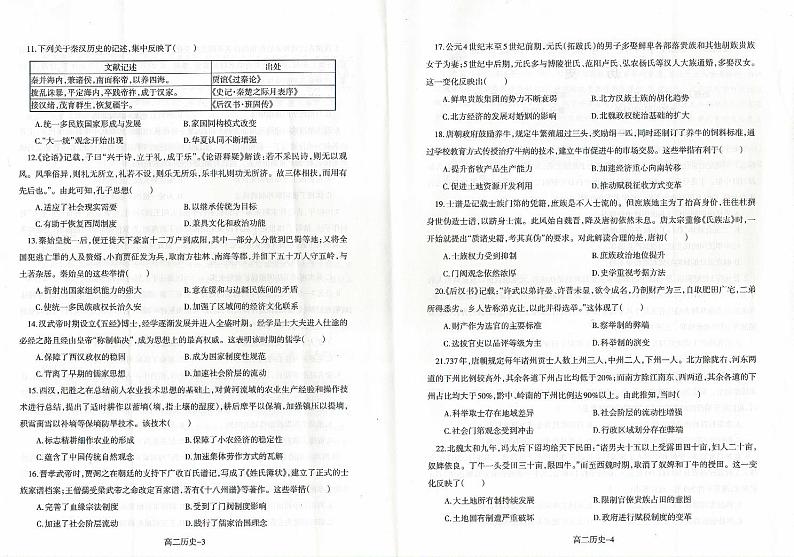 11.下列关于秦汉历史的记述,集中反映了(　　)
文献记述　出处
秦并海内,兼诸侯,南面称帝,以养四海。　贾谊《过秦论》
拨乱诛暴,平定海内,卒践帝祚,成于汉家。　《史记·秦楚之际月表序》
接汉绪,茂育群生,恢复疆宇。　《后汉书·班固传》
A.统一多民族国家形成与发展　B.家国同构模式改变
C.“大一统”观念开始出现　D.华夏认同不断增强
12.《论语》记载,子曰“兴于诗,立于礼,成于乐”。《论语释疑》解读:若不采民诗,则无以观
风。风乖俗异,则礼无所立,礼若不设,则乐无所乐,乐非礼则功无所济。故三体相扶,而用有
先后也。”。由此可知,孔子思想(　　)
A.适应了社会现实需要　B.以继承传统为目标
C.有助于恢复西周制度　D.兼具文化和政治功能
13.秦始皇统一后,便迁徙天下豪富十二万户到咸阳,其中一部分人分散到巴蜀等地;又将全
国犯逃亡罪的人及赘婿,小商贾征发为兵,取南方桂林、南海等郡,并留下五十万人守五岭,与
土著杂居。秦始皇的这些举措(　　)
A.折射出国家组织能力的强大　B.意在缓和与边疆民族间的矛盾
C.使统一多民族政权长治久安　D.加强了区域间的经济文化联系
14.汉武帝时期设立《五经》博士,经学逐渐发展并进入全盛时期。经学是士大夫进入仕途的
必经之路且经由皇帝“称制临决”,成为思想上的最高权威。这表明该时期的儒学(　　)
A.保障了西汉政权的稳固　B.成为国家制度性规范
C.背离了早期的儒家思想　D.加速社会阶层的流动
15.西汉,氾胜之在总结前人农业技术思想的基础上,对黄河流域的农业生产经验和操作技
术进行总结,提出了适时耕作以蓄墒(墒,指土壤的湿度),耕后摩平以保墒,加强镇压以提墒,
积雪蔺雪以补墒等保墒防旱技术。该技术(　　)
A.标志精耕细作农业的形成　B.保障了小农经济的稳定性
C.蕴含了中国传统自然观念　D.加速集体劳作方式的瓦解
16.晋孝武帝时,贾弼之在朝廷的支持下广收百氏谱记,写成了《姓氏簿状》,建立了正式的士
族家谱档案;王僧孺受梁武帝之命改定百家谱,若有《十八州谱》等著作。这些举措(　　)
A.完善了血缘宗法制度　B.受到了门阀制度影响
C.加速了社会阶层流动　D.践行了儒家治国理念
高二历史-3
17.公元4世纪末至5世纪前期,元氏(拓跋氏)的男子多娶鲜卑各部落贵族和其他胡族贵族
女子为妻;5世纪中后期,元氏多与博陵崔氏、范阳卢氏、弘农杨氏等汉人大族通婚,多娶汉女。
这一变化反映出(　　)
A.鲜卑贵族集团的势力不断衰弱　B.北方汉族士族的胡化趋势
C.北方经济的发展对婚姻的影响　D.北魏政权统治基础的扩大
18.唐朝政府鼓励养牛,规定牛繁殖超过三头,奖励绢一匹,同时还制订了养牛的饲料标准,通
过学校教育方式传授治疗牛病的技术,建立生市促进牛的市场交易。这些举措有利于(　　)
A.提升畜牧产品生产能力　B.加速经济重心向南转移
C.促进土地资源开发利用　D.推动赋税征收方式变革
19.士谱是记载士族门第的凭籍,庶族是不入士人流品的。但庶族地主为了抬高身价,往往杜撰
身世伪造士谱,以跻身士流。此风始自魏晋,降及唐初依然未息。唐太宗重修《氏族志》时,一
开始就提出“质诸史籍,考其真伪”的要求。对此解读合理的是,唐初(　　)
A.士族权力受到抑制　B.庶族政治地位提升
C.门阀观念依然浓厚　D.史学重视考据实证
20.《后汉书》记载:“许武以弟许晏、许普未显,欲令成名,乃剖财产为三,自取肥田广宅,二弟
所得悉劣。乡人皆称弟克让,以此并得选举。”这体现了(　　)
A.财产作为选官的主要标准　B.察举制的弊端
C.达按官史以品评等级为主　D.科举制的演变
21.737年,唐朝规定每年诸州贡士人数上州三人,中州二人,下州一人。北方除陇右、河东两
道的下州比例较高外,其余各道下州占比均低于20%;而南方除江南东、西两道,其余各道的下
州占比均大于50%,黔中、岭南的下州比例达90%以上。由此推知,当时(　　)
A.科举取士存在地域差异　B.社会阶层的流动性增强
C.社会门第观念受到冲击　D.行政区域划分存在弊端
22.北魏太和九年,均田令下诏均给天下民田:“诸男夫十五以上受露田四十亩,妇人二十亩,
奴婢依良。丁牛一头受田三十亩,限四牛。”而至西魏时期,取消了奴婢和丁牛的授田。这一变
化反映了(　　)
A.大土地所有制持续发展　B.限制官僚贵族占田的意图
C.土地国有制遭严重破坏　D.政府进行赋税制度的变革
高二历史-4